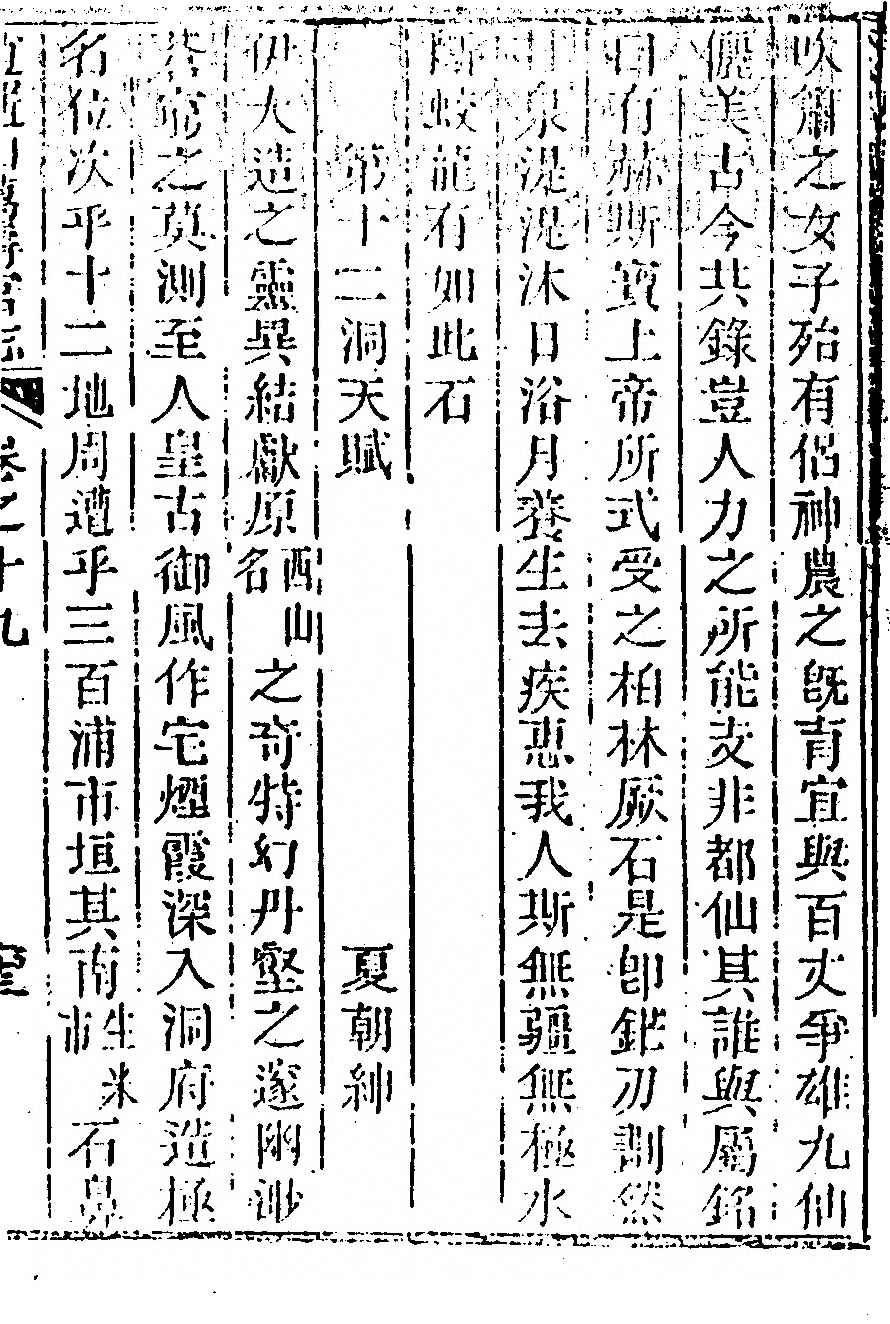 吹簫之女子殆有侶神農之旣育宜與百丈爭雄九仙
儷美古今共錄豈人力之所能爻非都仙其誰與屬銘
曰有赫斯寶上帝所式受之柏林厥石是卽鋩刃劃然
山泉湜湜沐日浴月養生去疾惠我人斯無疆無極水
斷蛟龍有如此石
第十二洞天賦 夏朝紳
伊大造之靈異結厭原西山名之奇特幻丹壑之邃幽渺
窅之莫測至人皇古御風作宅煙霞深入洞府造極
名位次乎十二地周遭乎三百浦市垣其南生米市石鼻
萬壽宮志 卷之十九